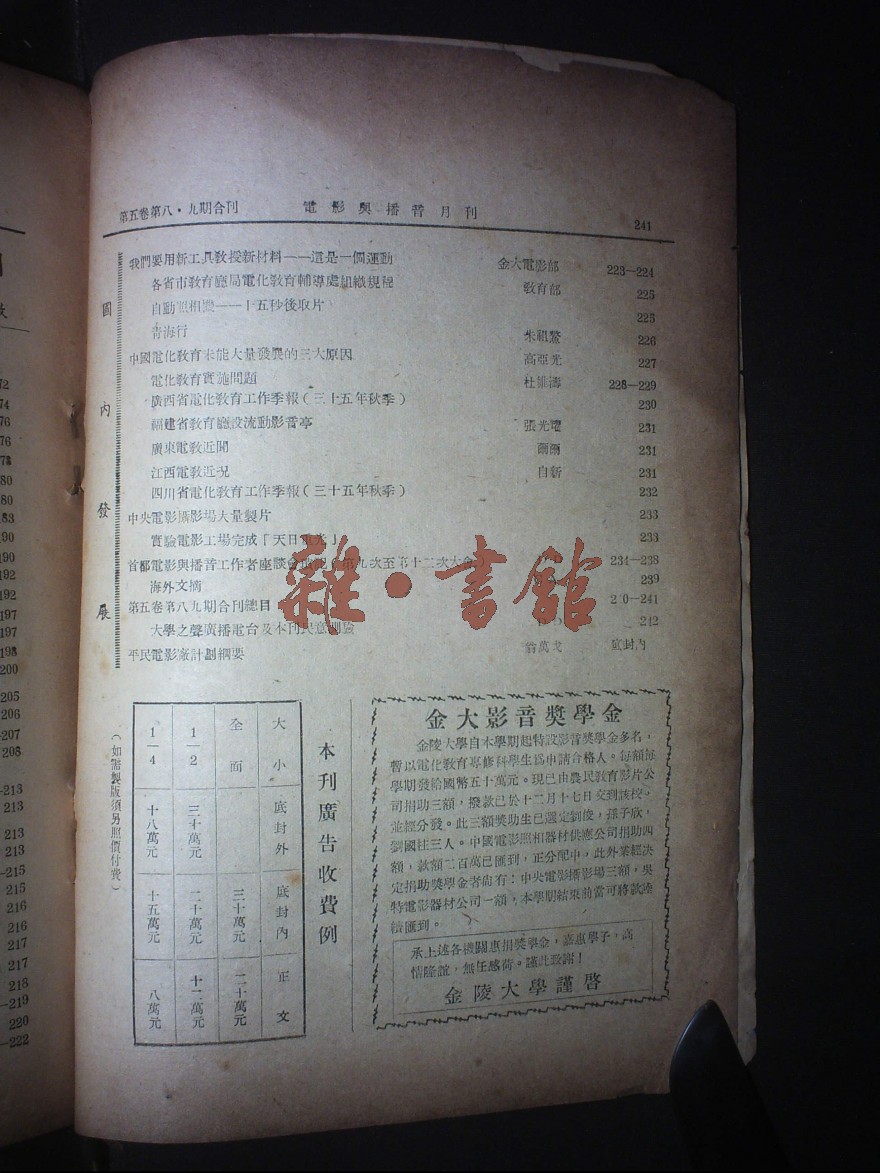 第五卷第八·九期合刊
電影與播音月刊
241
國內發展
我們要用新工具教授新材料——這是一個運動 金大電影部 223—224
各省市教育廳局電化教育輔導處組織規程 教育部 225
自動照相機——十五秒後取片 225
青海行 朱祖鰲 226
中國電化教育未能大量發展的三大原因 高亞光 227
電化教育實施問題 杜維濤 228—229
廣西省電化教育工作季報（三十五年秋季） 230
福建省教育廳設流動影音亭 張光耀 231
廣東電教近聞 爾爾 231
江西電教近況 自新 231
四川省電化教育工作季報（三十五年秋季） 232
中央電影攝影場大量製片 233
實驗電影工場完成「天日重光」 233
首都電影與播音工作者座談會 九次至第十二次大會） 234—238
海外文摘 239
第五卷第八九期合刊總目 0—241
大學之聲廣播電台及本刊民意測驗 242
平民電影廠計劃綱要 翁萬戈 底封內
本刊廣告收費例
大小 底封外 底封內 正文
全面 三十萬元 二十萬元
1/2 三十萬元 二十萬元 十二萬元
1/4 十八萬元 十五萬元 八萬元
（如需製版須另照價付費）
金大影音獎學金
金陵大學自本學期起特設影音獎學金多名，
暫以電化教育專修科學生爲申請合格人。每額每
學期發給國幣五十萬元。現已由農民教育影片公
司捐助三額，撥款已於十二月十七日交到該校，
並經分發。此三額獎助生已選定劉俊，孫子欣，
劉國柱三人。中國電影照相器材供應公司捐助四
額，款額二百萬已匯到，正分配中，此外業經決
定捐助獎學金者尙有：中央電影攝影場三額，吳
特電影器材公司一額，本學期結束前當可將款陸
續匯到。
承上述各機關惠捐獎學金，嘉惠學子，高
情隆誼，無任感荷。謹此致謝！
金陵大學謹啓
雜·書館
72
74
76
76
78
80
80
83
190
190
192
197
197
198
200
205
206
207
208
—213
213
213
213
—215
215
216
216
217
217
218
—219
220
—222